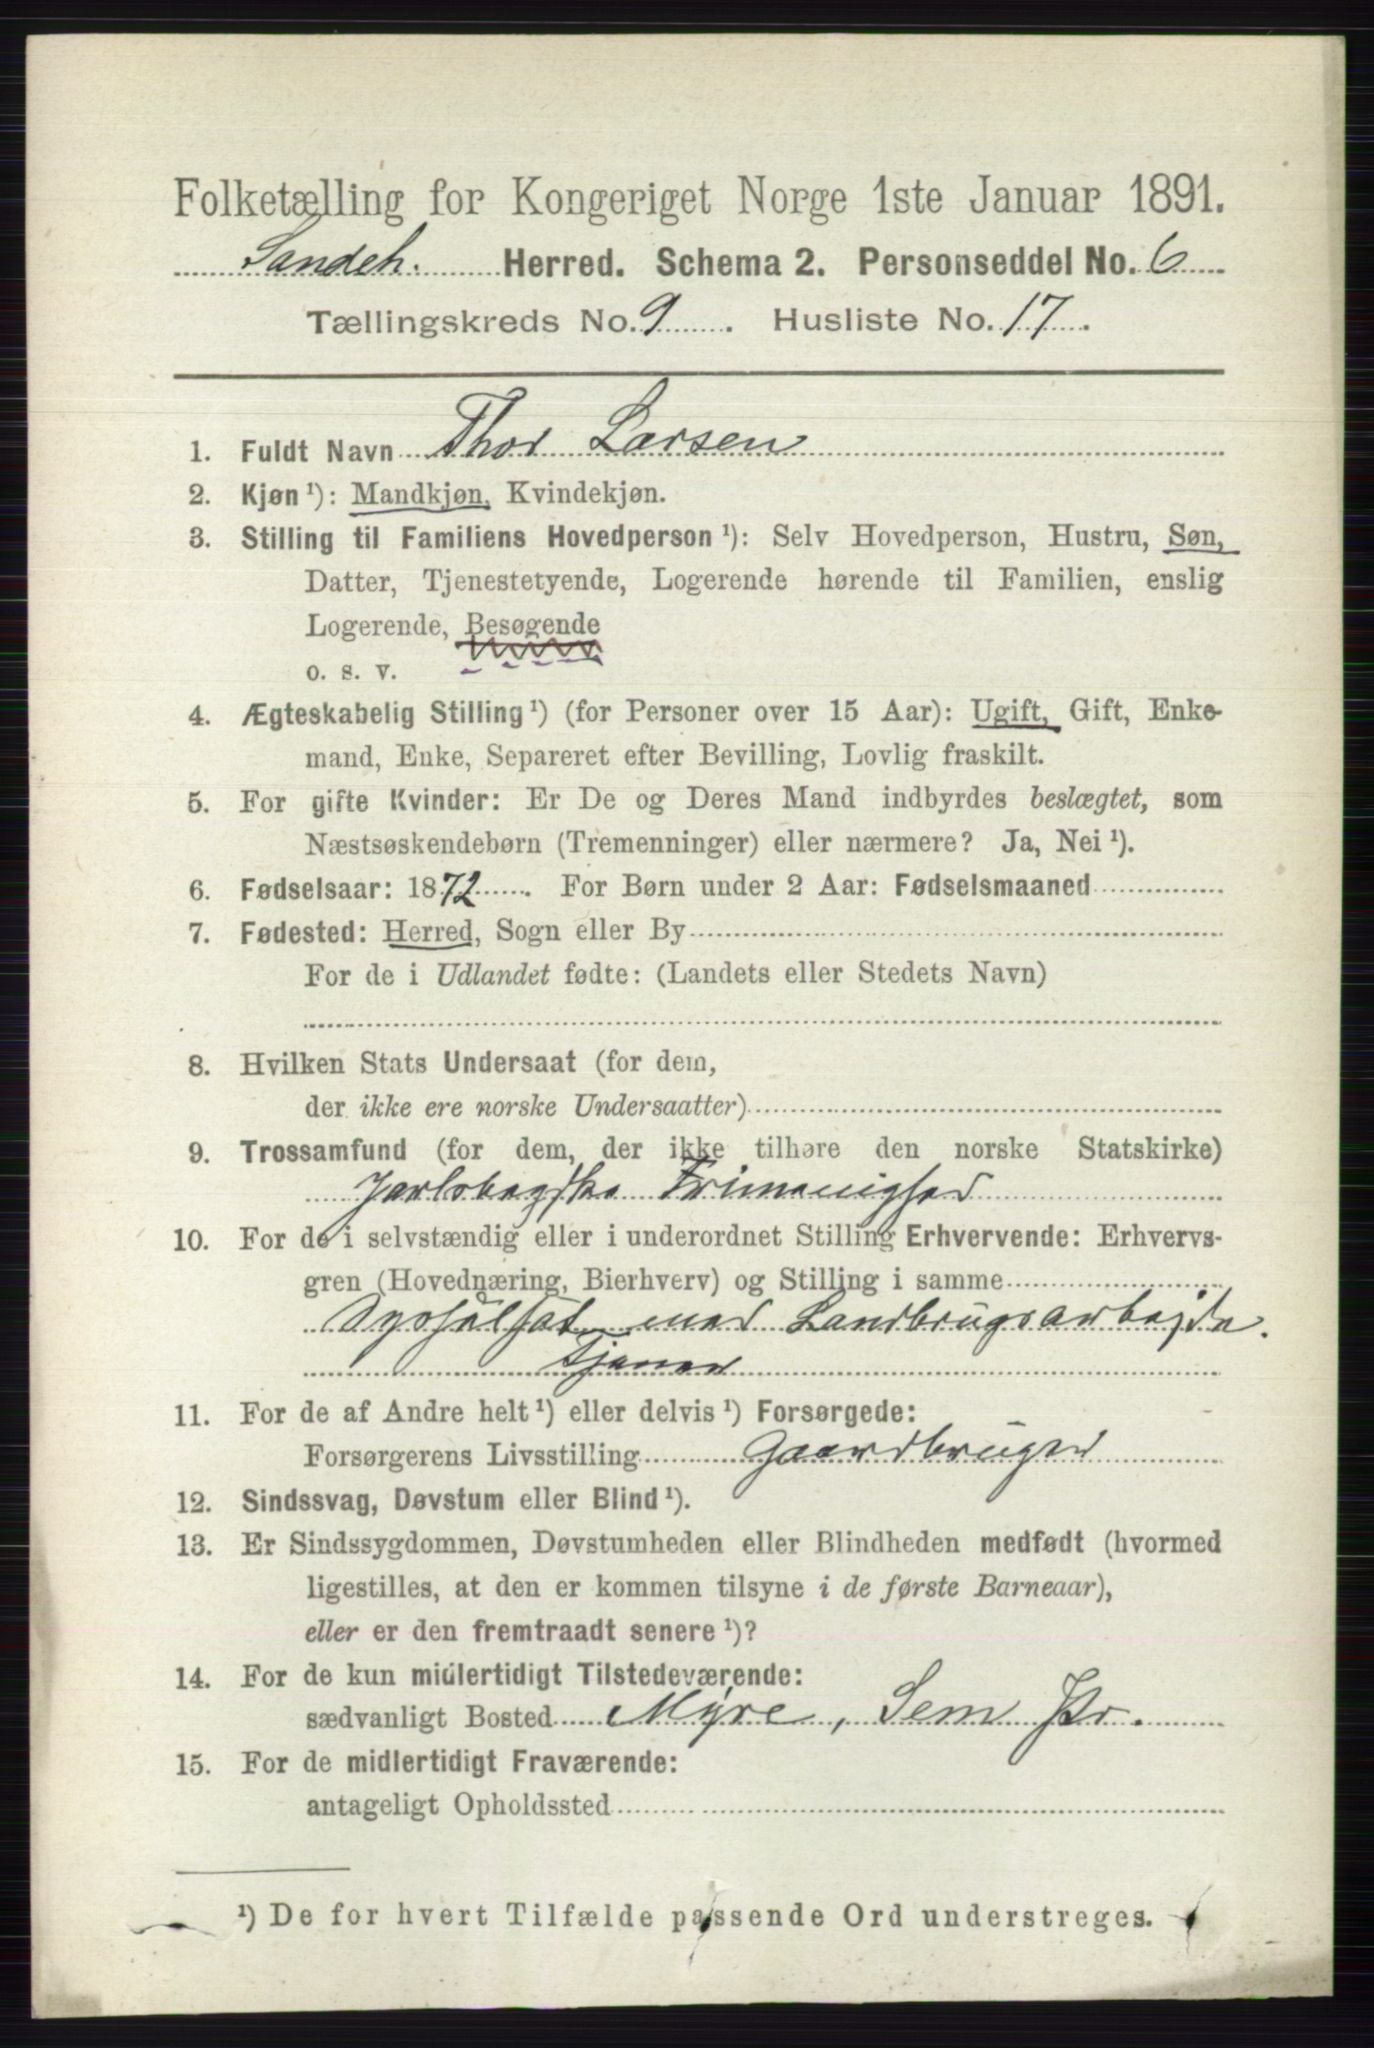 Folketælling for Kongeriget Norge 1ste Januar 1891.
Sandeh. Herred. Schema 2. Personseddel No. 6
Tællingskreds No. 9. Husliste No. 17.
1. Fuldt Navn Thor Larsen
2. Kjøn ¹): Mandkjøn, Kvindekjøn.
3. Stilling til Familiens Hovedperson ¹): Selv Hovedperson, Hustru, Søn,
Datter, Tjenestetyende, Logerende hørende til Familien, enslig
Logerende, Besøgende
o. s. v.
4. Ægteskabelig Stilling ¹) (for Personer over 15 Aar): Ugift, Gift, Enke-
mand, Enke, Separeret efter Bevilling, Lovlig fraskilt.
5. For gifte Kvinder: Er De og Deres Mand indbyrdes beslægtet, som
Næstsøskendebørn (Tremenninger) eller nærmere? Ja, Nei ¹).
6. Fødselsaar: 1872. For Børn under 2 Aar: Fødselsmaaned
7. Fødested: Herred, Sogn eller By
For de i Udlandet fødte: (Landets eller Stedets Navn)
8. Hvilken Stats Undersaat (for dem,
der ikke ere norske Undersaatter)
9. Trossamfund (for dem, der ikke tilhøre den norske Statskirke)
Jarlsbergske Frimenighed
10. For de i selvstændig eller i underordnet Stilling Erhvervende: Erhvervs-
gren (Hovednæring, Bierhverv) og Stilling i samme
Sysselsat med Landbrugsarbejde.
Tjener
11. For de af Andre helt ¹) eller delvis ¹) Forsørgede:
Forsørgerens Livsstilling Gaardbruger
12. Sindssvag, Døvstum eller Blind ¹).
13. Er Sindssygdommen, Døvstumheden eller Blindheden medfødt (hvormed
ligestilles, at den er kommen tilsyne i de første Barneaar),
eller er den fremtraadt senere ¹)?
14. For de kun midlertidigt Tilstedeværende:
sædvanligt Bosted Myre, Sem Pr.
15. For de midlertidigt Fraværende:
antageligt Opholdssted
¹) De for hvert Tilfælde passende Ord understreges.